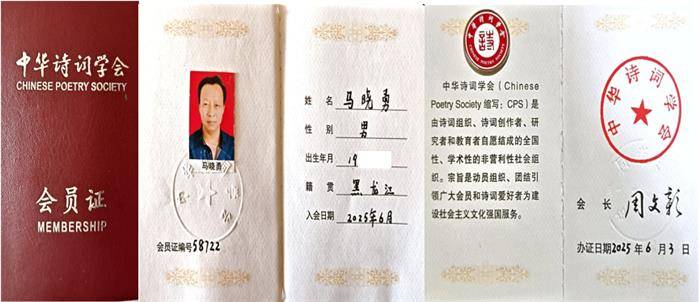 中华诗词学会
CHINESE POETRY SOCIETY
会员证
MEMBERSHIP
马晓勇
会员证编号58722
姓 名 马晓勇
性 别 男
出生年月 19
籍 贯 黑龙江
入会日期 2025年6月
中华诗词学会
诗
中华诗词学会（Chinese
Poetry Society 缩写：CPS）是
由诗词组织、诗词创作者、研
究者和教育者自愿结成的全国
性、学术性的非营利性社会组
织。宗旨是动员组织、团结引
领广大会员和诗词爱好者为建
设社会主义文化强国服务。
中华诗词学会
会 长 周文彰
办证日期2025年6月3日